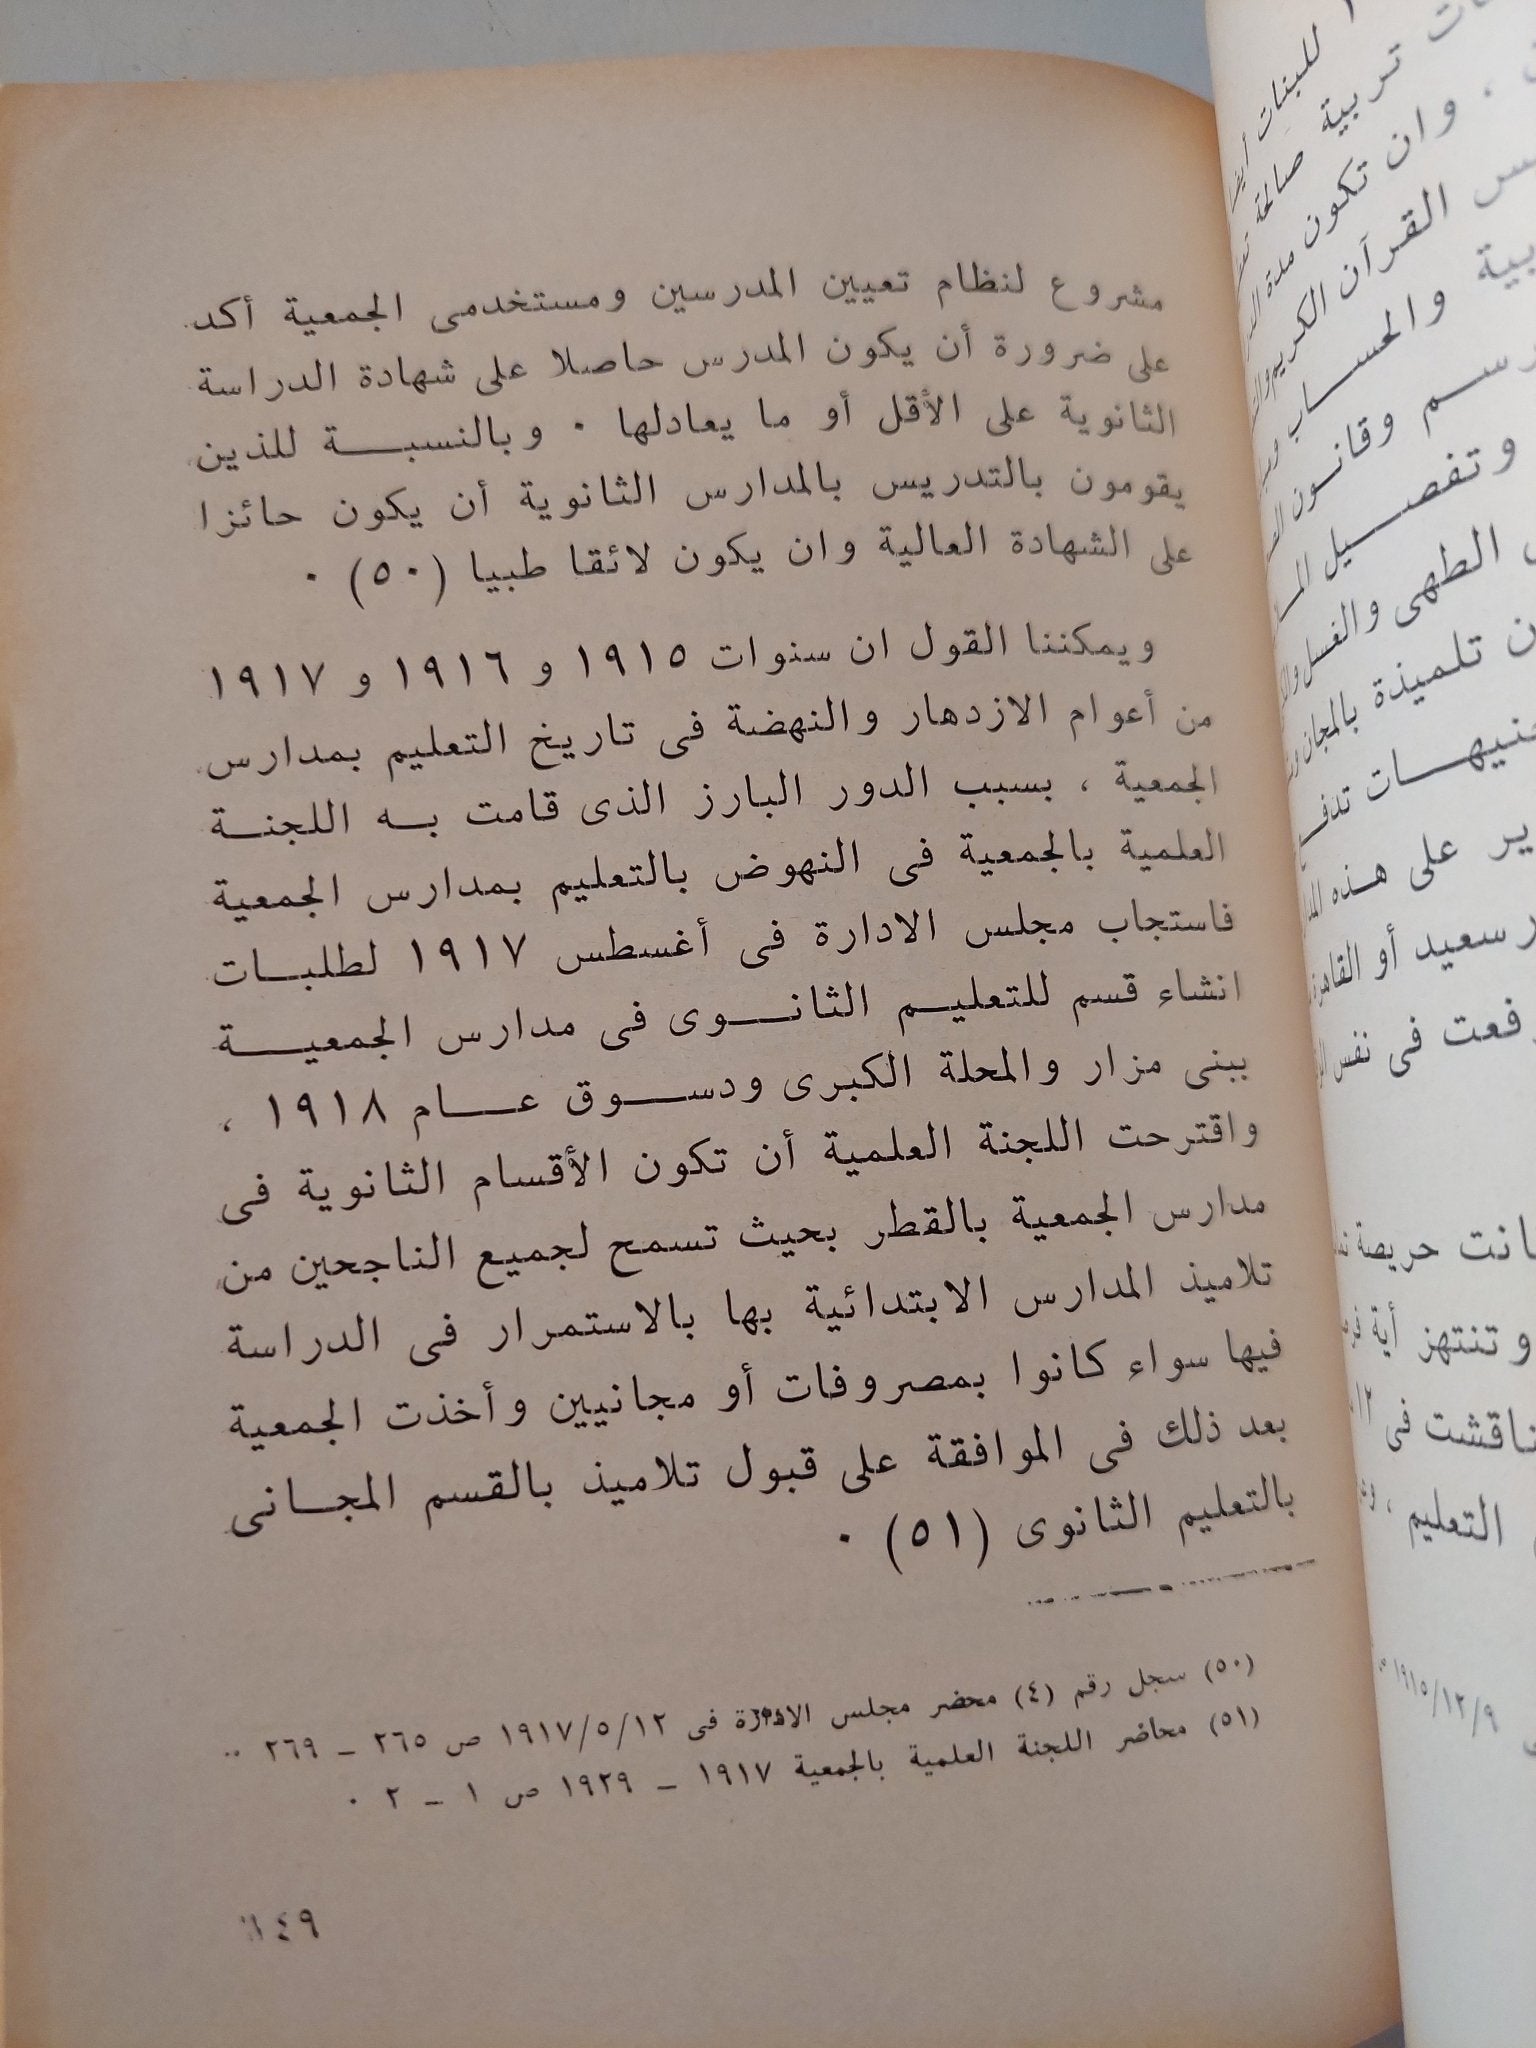 مشروع لنظام تعيين المدرسين ومستخدمى الجمعية أكد
على ضرورة أن يكون المدرس حاصلا على شهادة الدراسة
الثانوية على الأقل أو ما يعادلها ٠ وبالنسبة للذين
يقومون بالتدريس بالمدارس الثانوية أن يكون حائزا
على الشهادة العالية وان يكون لائقا طبيا (٥٠) ٠
ويمكننا القول ان سنوات ١٩١٥ و ١٩١٦ و ١٩١٧
من أعوام الازدهار والنهضة فى تاريخ التعليم بمدارس
الجمعية ، بسبب الدور البارز الذى قامت به اللجنة
العلمية بالجمعية فى النهوض بالتعليم بمدارس الجمعية
فاستجاب مجلس الادارة فى أغسطس ١٩١٧ لطلبات
انشاء قسم للتعليم الثانوى فى مدارس الجمعية
ببنى مزار والمحلة الكبرى ودسوق عام ١٩١٨ ،
واقترحت اللجنة العلمية أن تكون الأقسام الثانوية فى
مدارس الجمعية بالقطر بحيث تسمح لجميع الناجحين من
تلاميذ المدارس الابتدائية بها بالاستمرار فى الدراسة
فيها سواء كانوا بمصروفات أو مجانيين وأخذت الجمعية
بعد ذلك فى الموافقة على قبول تلاميذ بالقسم المجانى
بالتعليم الثانوى (٥١) ٠
(٥٠) سجل رقم (٤) محضر مجلس الادارة فى ١٩١٧/٥/١٢ ص ٢٦٥ – ٢٦٩ ٠٠
(٥١) محاضر اللجنة العلمية بالجمعية ١٩١٧ – ١٩٢٩ ص ١ – ٢ ٠
١٤٩
للبنات
تربية صالحة
وان تكون مدة
القرآن الكريم
والحساب
وقانون
وتفصيل
الطهى والغسل
تلميذة بالمجان
تدفع
على هذه
سعيد أو القاهرة
فى نفس
حريصة
وتنتهز أية
فى
التعليم ،
١٩١٥/١٢/٩